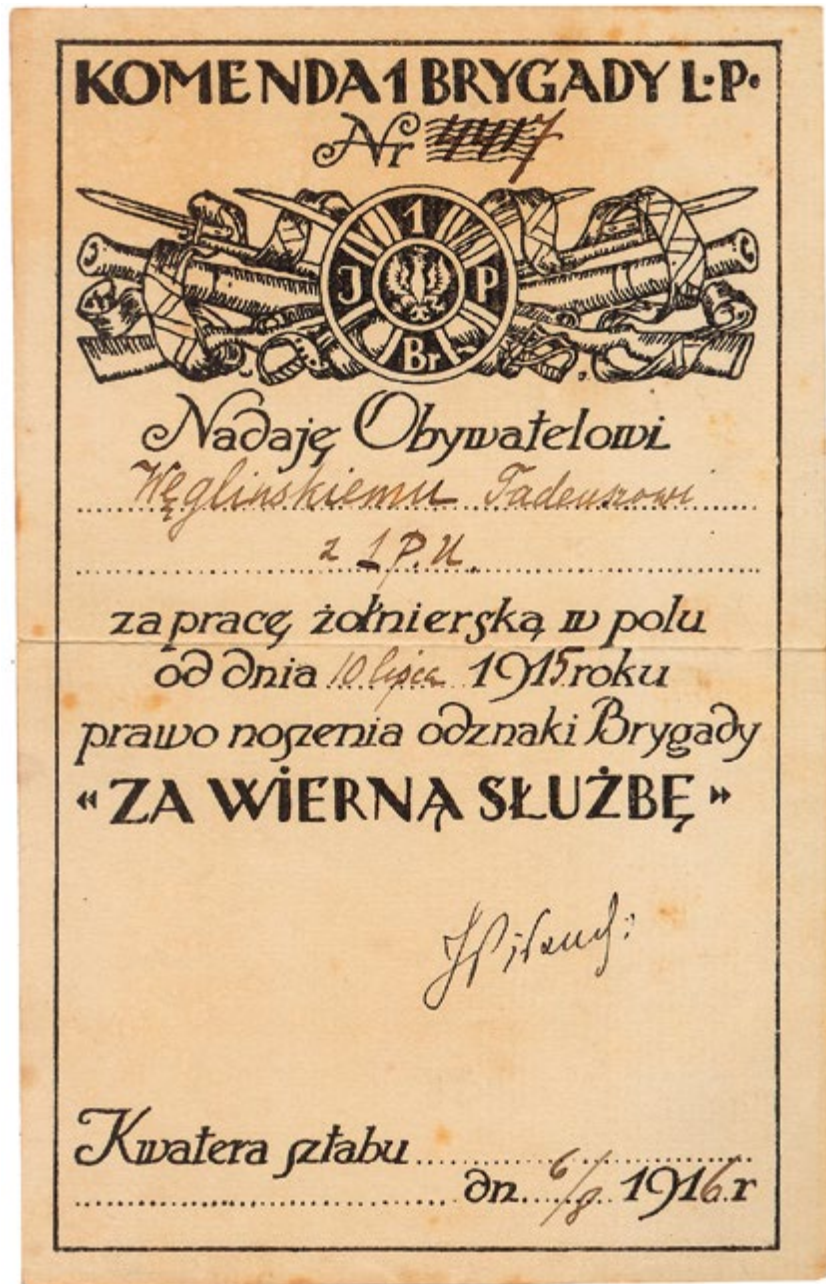 KOMENDA 1 BRYGADY L·P·
Nr 4417
1
J P
Br
Nadaję Obywatelowi
Węglinskiemu Tadeuszowi
z 1 P.U.
za pracę żołnierską w polu
od dnia 10 lipca 1915 roku
prawo noszenia odznaki Brygady
« ZA WIERNĄ SŁUŻBĘ »
JPiłsudski
Kwatera sztabu
dn. 6/8 1916 r